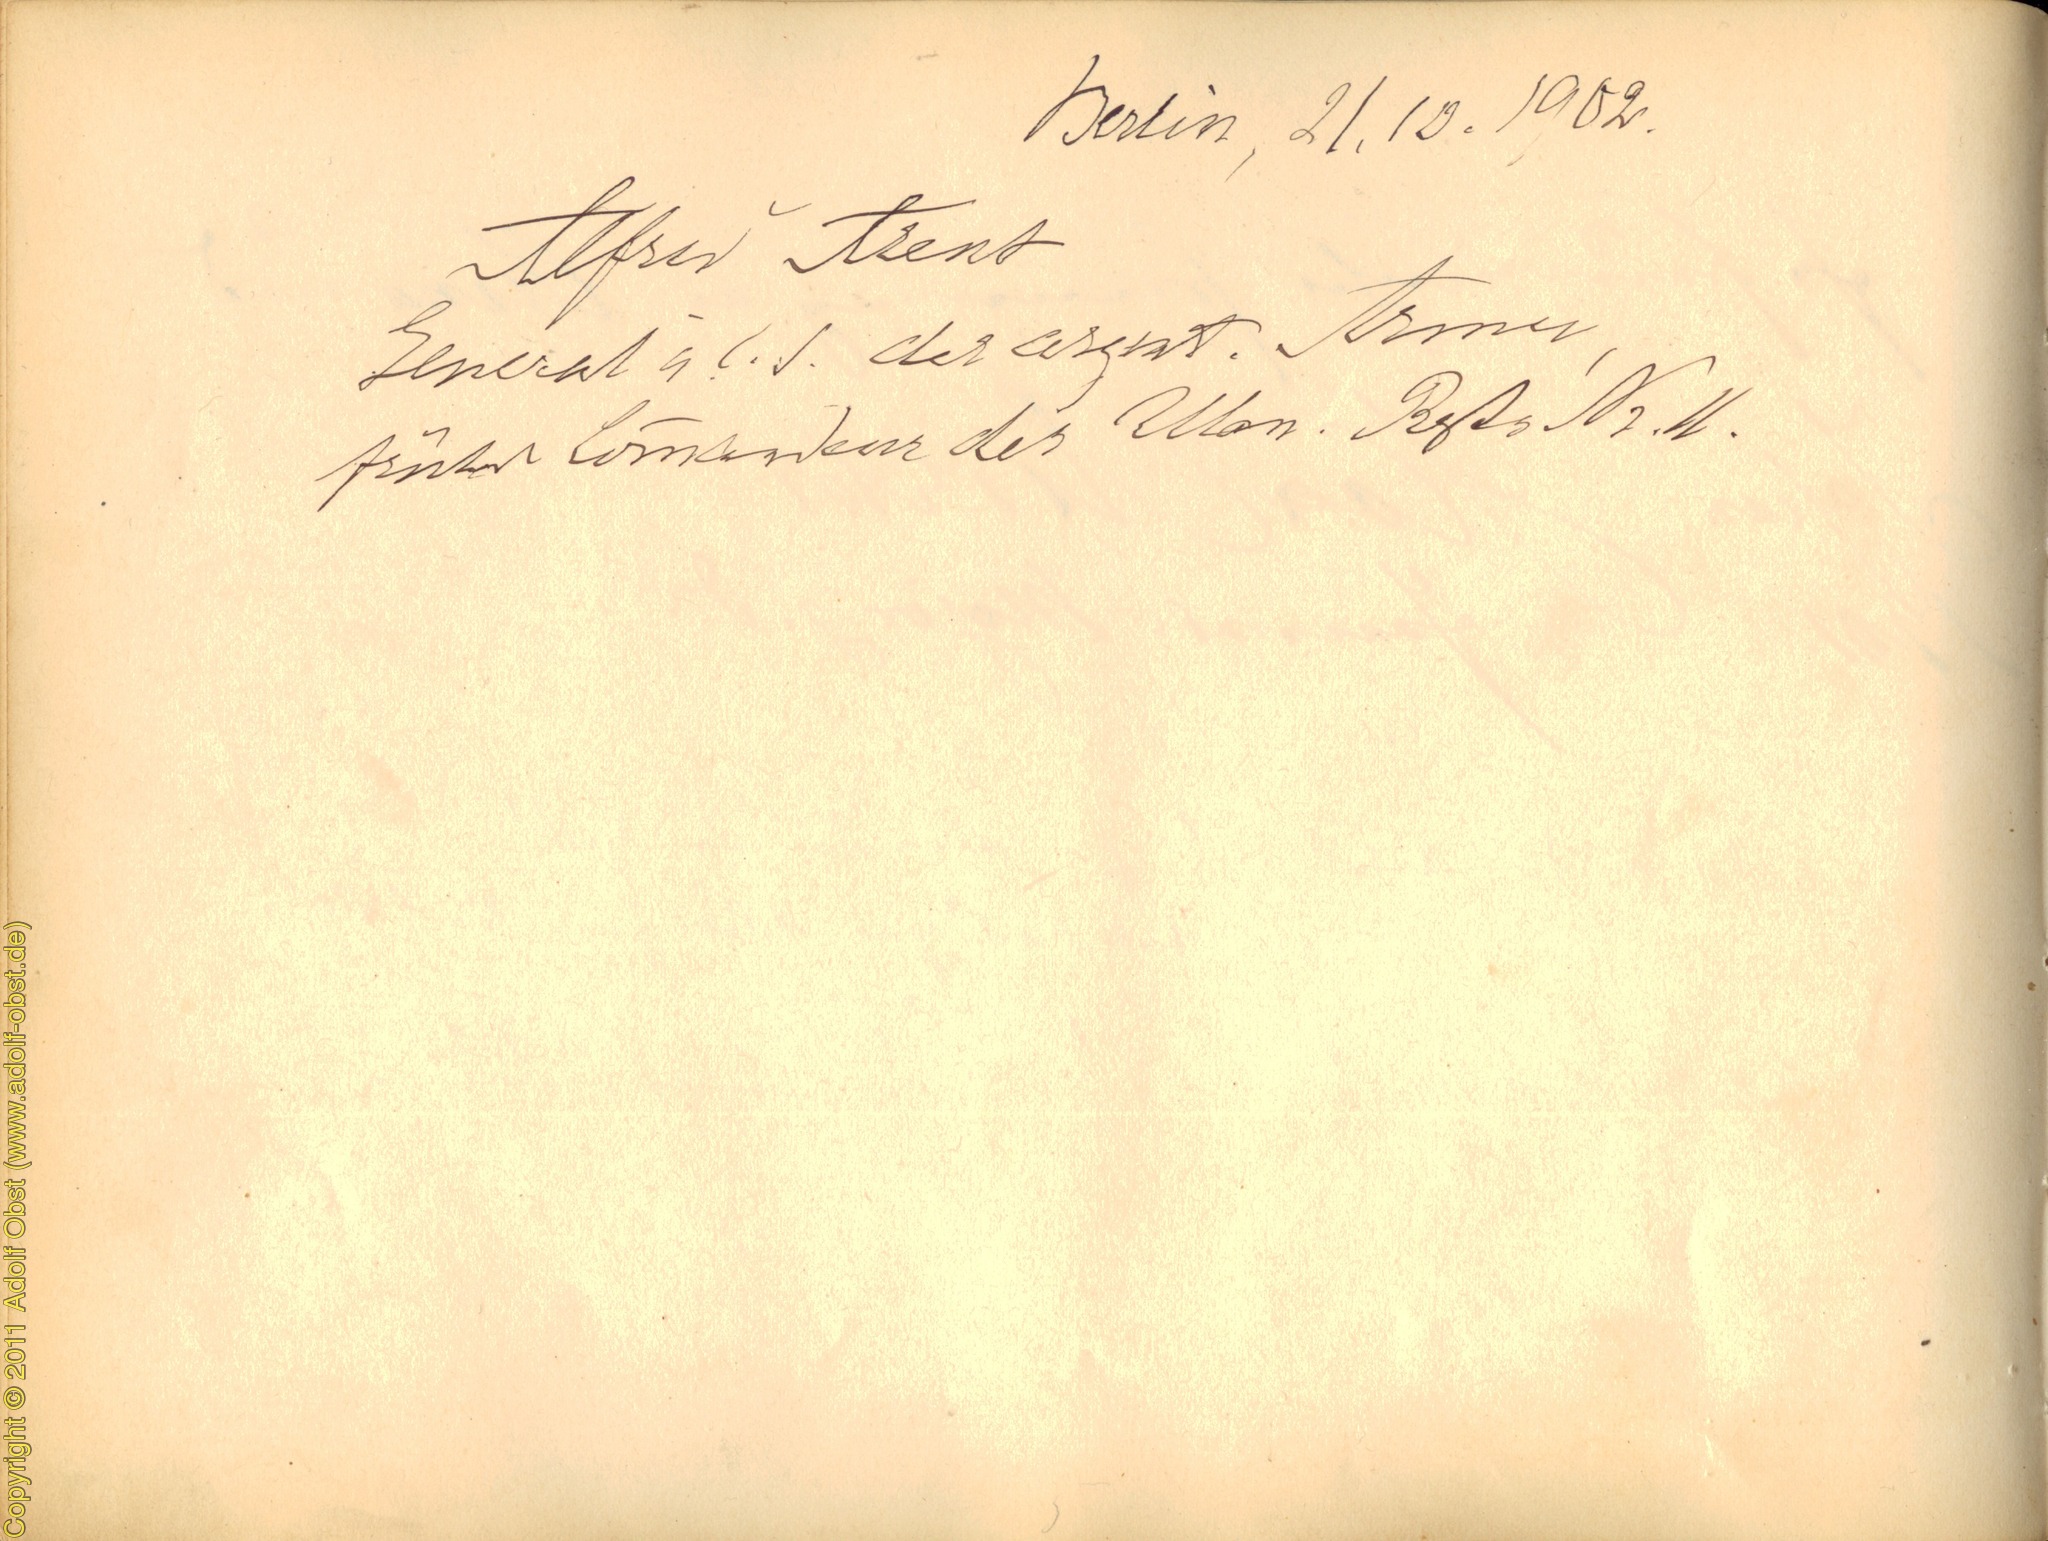 Berlin, 21.10.1902.
Alfred Arent
General à l. s. der argent. Armee,
früher Com̄andeur des Ulan. Regts Nr. 11.
Copyright © 2011 Adolf Obst (www.adolf-obst.de)